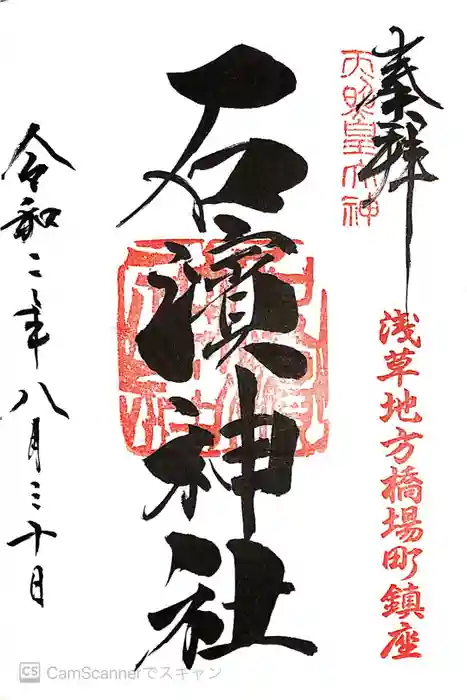 奉拝
天照皇大神
浅草地方橋場町鎮座
石濱神社
令和二年八月三十日
CS CamScannerでスキャン